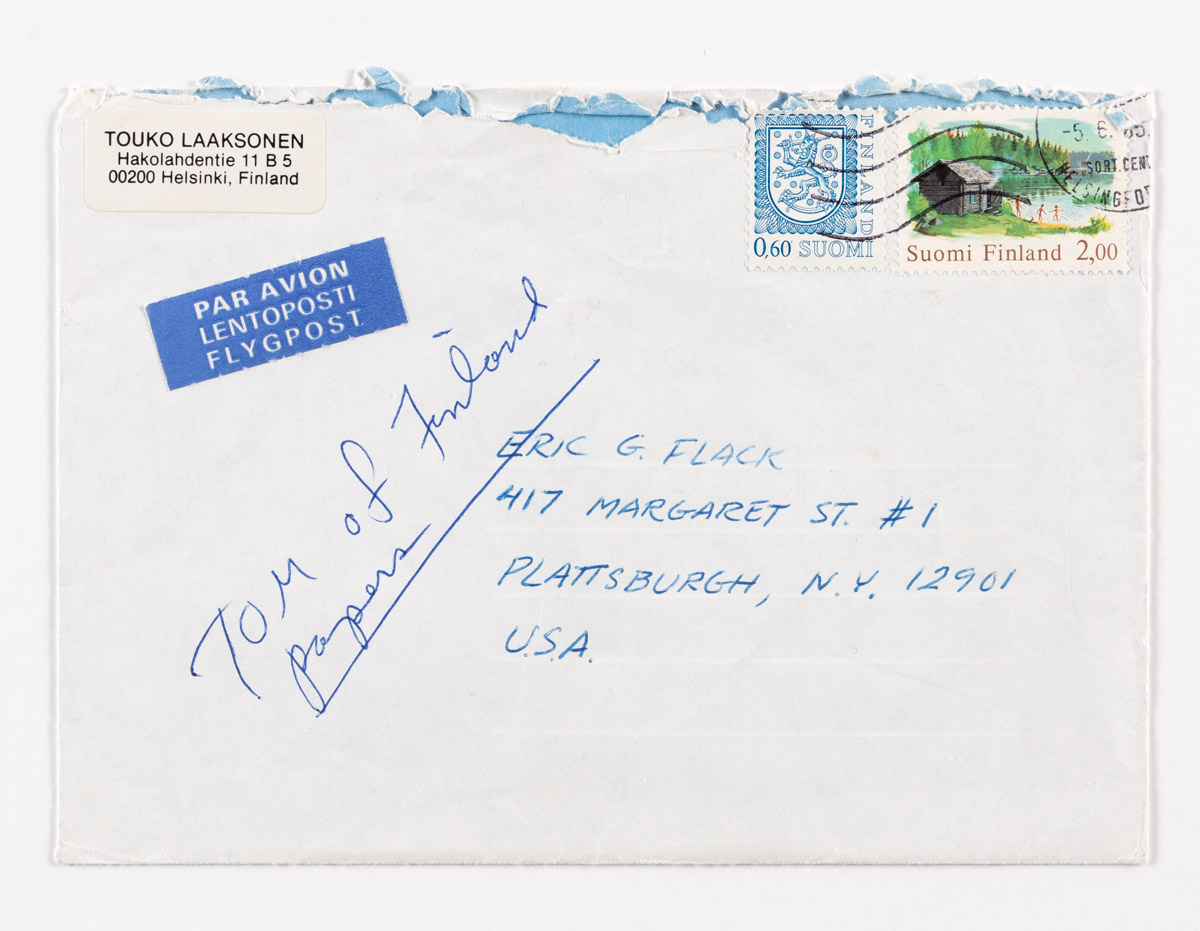 TOUKO LAAKSONEN
Hakolahdentie 11 B 5
00200 Helsinki, Finland
FINLAND
0,60 SUOMI
Suomi Finland 2,00
-5.6.85.
SORT.CENT
HELSINGFO
PAR AVION
LENTOPOSTI
FLYGPOST
TOM of Finland
papers
ERIC G. FLACK
417 MARGARET ST. #1
PLATTSBURGH, N.Y. 12901
U.S.A.